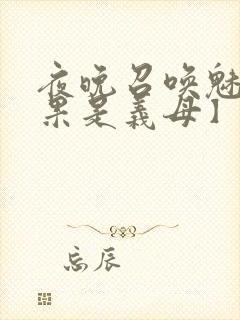 夜晚召唤魅
果是義母】
忘辰